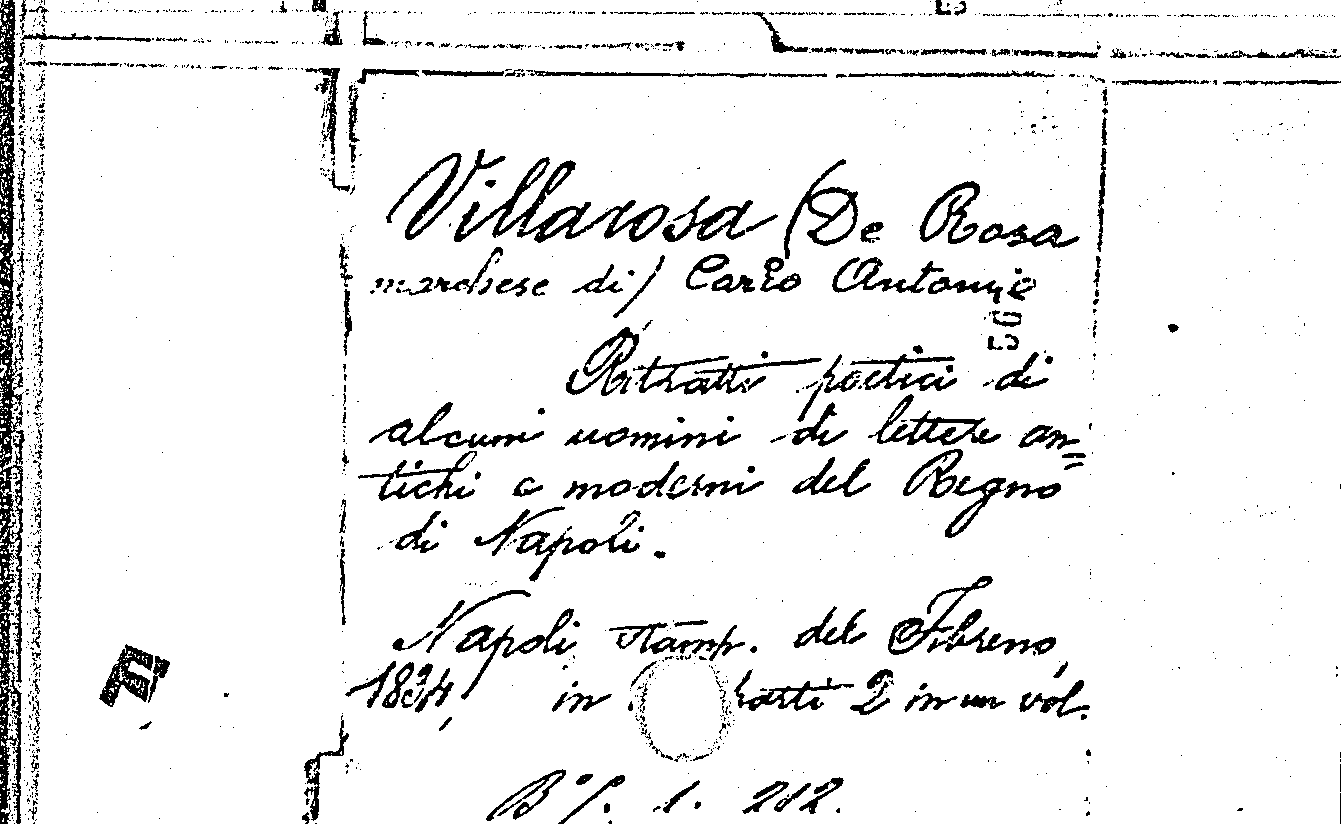 Villarosa (De Rosa
marchese di) Carlo Antonio
56
Ritratti poetici di
alcuni uomini di lettere an=
tichi e moderni del Regno
di Napoli.
Napoli, stamp. del Fibreno,
1834, in parti 2 in un vol.
1. 212.